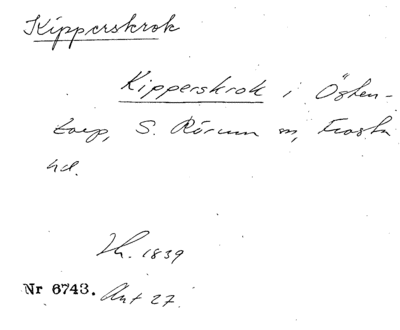 Kipperskrok
Kipperskrok i Östen-
torp, S. Rörum sn, Frosta
hd.
Lh. 1839
Nr 6743. Ant 27.